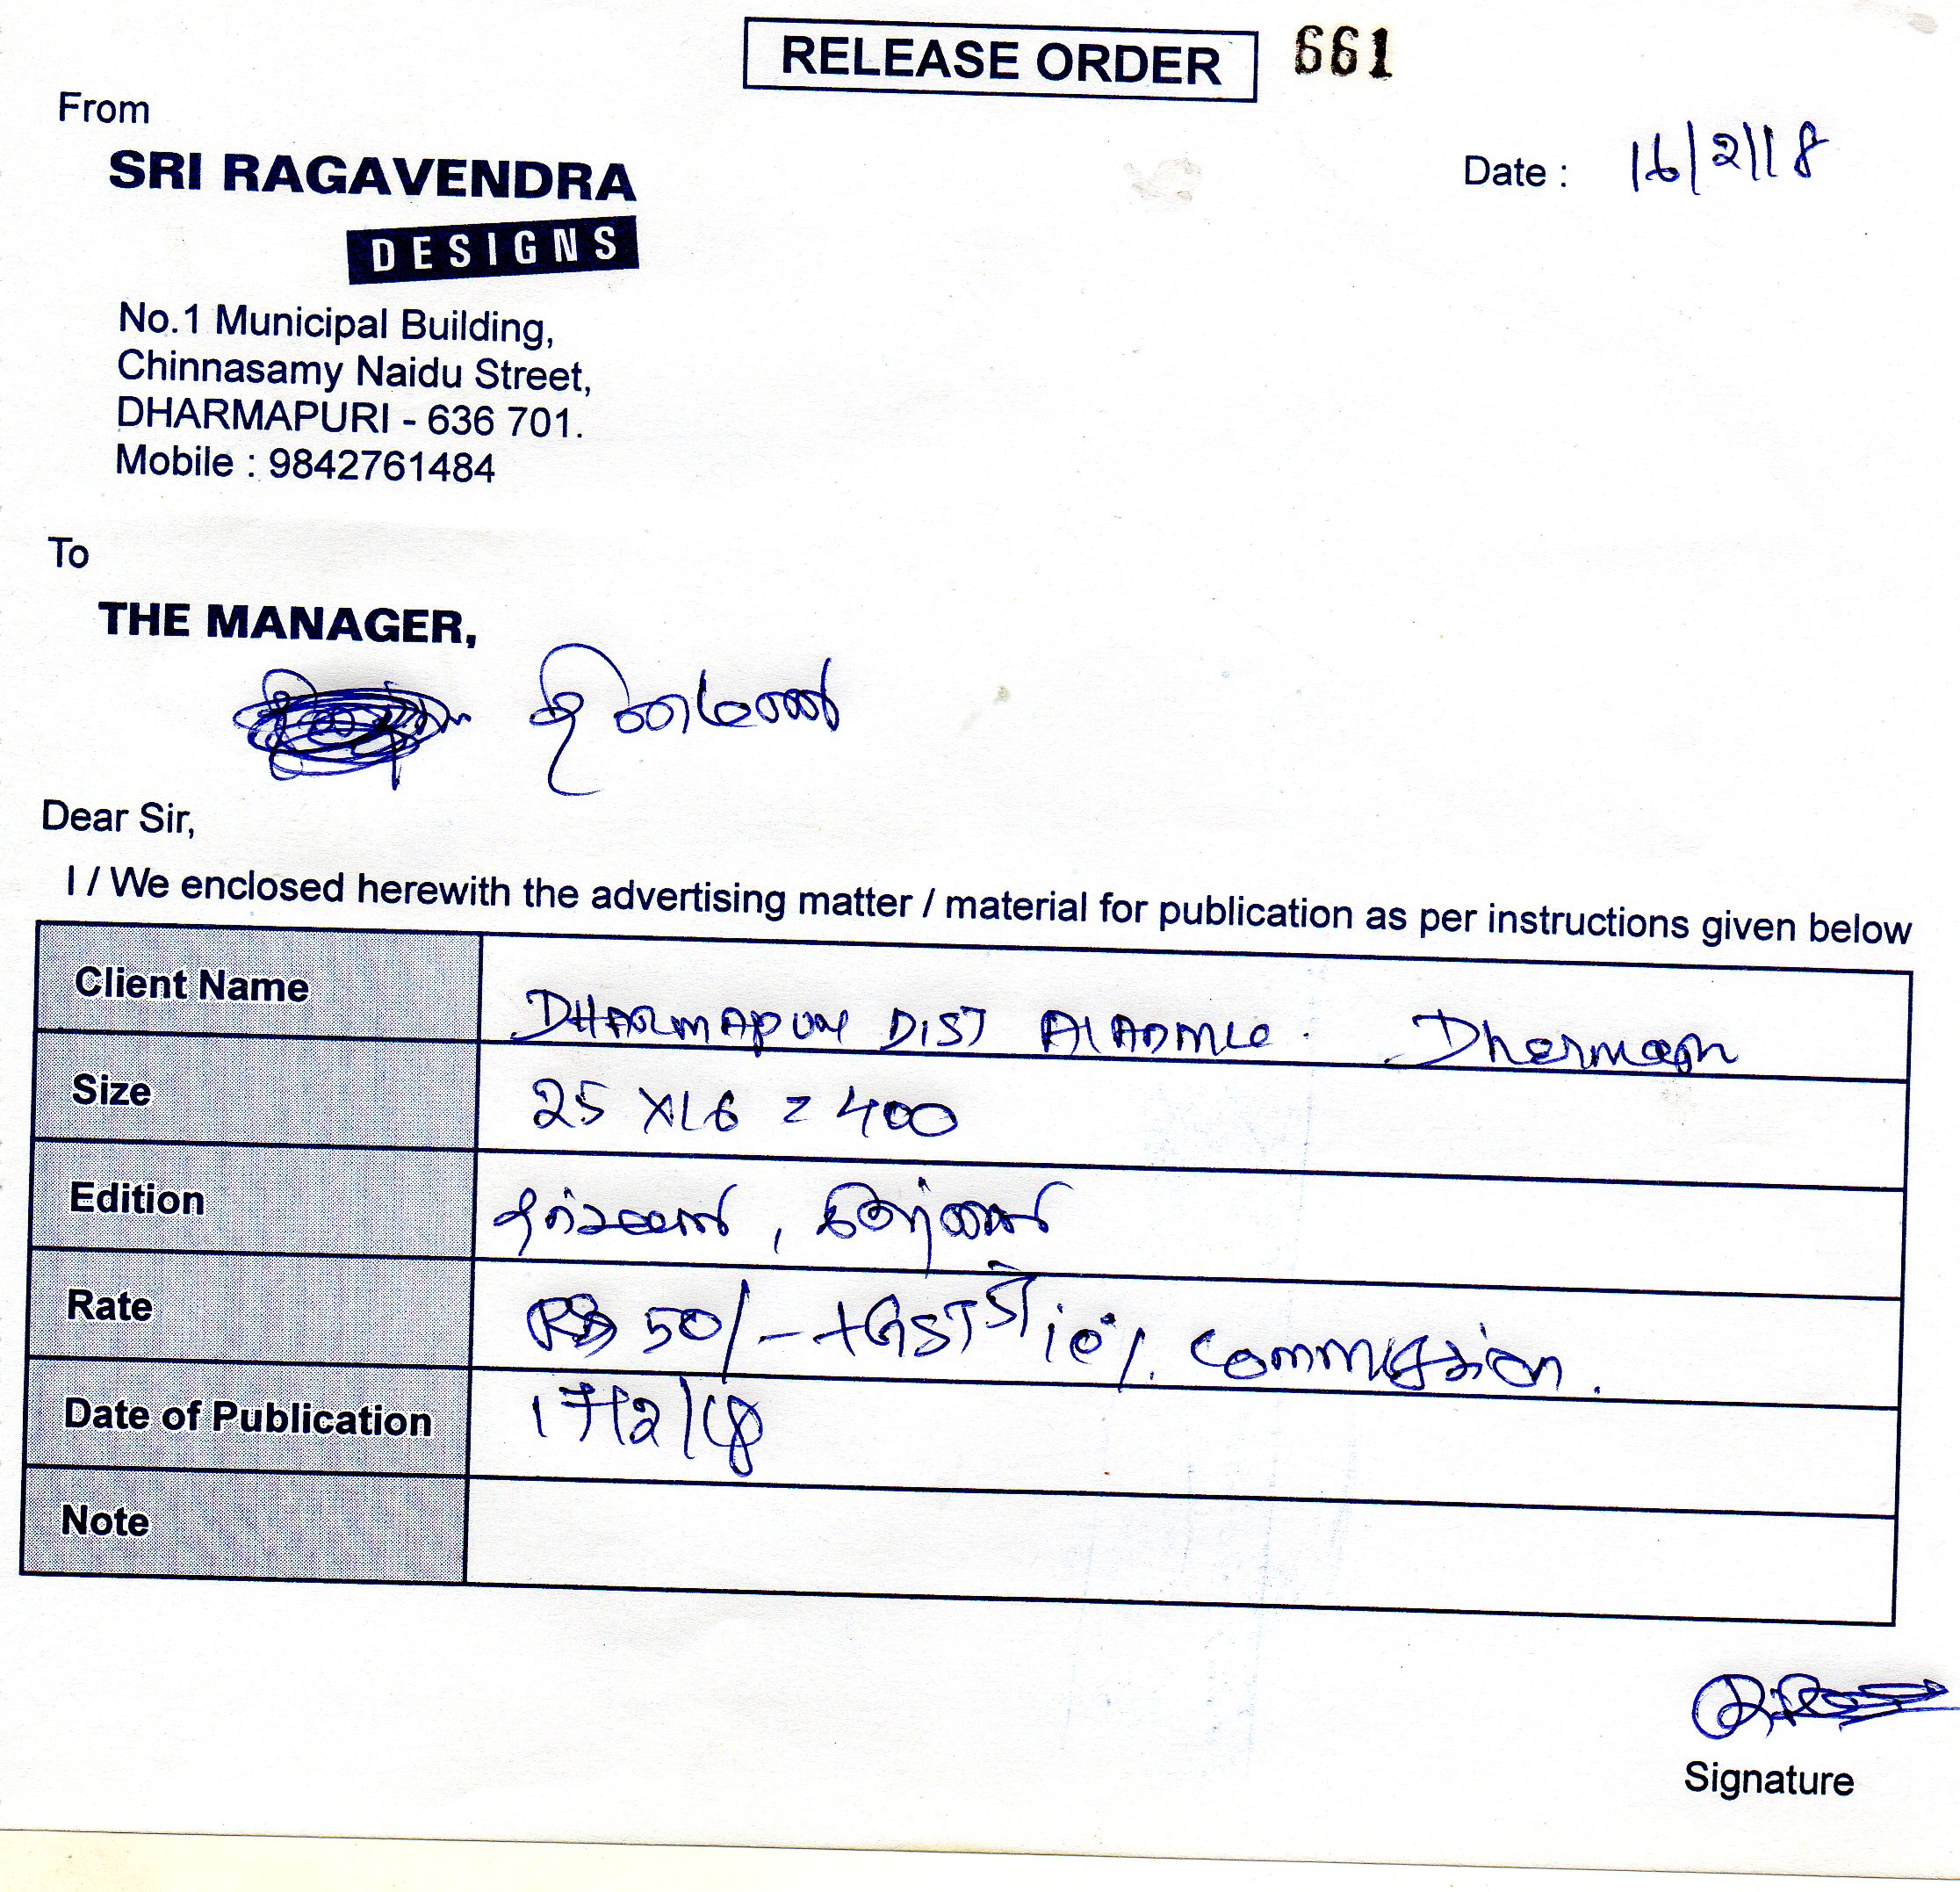 RELEASE ORDER 661
From
Date : 16/2/18
SRI RAGAVENDRA
DESIGNS
No.1 Municipal Building,
Chinnasamy Naidu Street,
DHARMAPURI - 636 701.
Mobile : 9842761484
To
THE MANAGER,
தினமணி
Dear Sir,
I / We enclosed herewith the advertising matter / material for publication as per instructions given below
Client Name DHARMAPURI DIST AIADMK.
Size 25 X16 = 400
Edition
Rate RS 50/- +GST 5% 10% Commission.
Date of Publication 17/2/18
Note
Signature